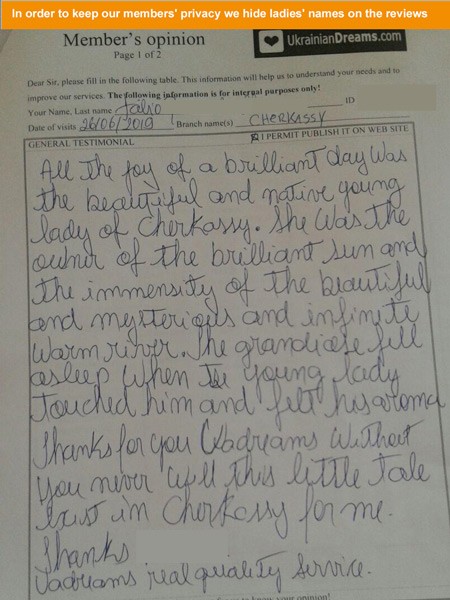 In order to keep our members' privacy we hide ladies' names on the reviews
Member's opinion
Page 1 of 2
UkrainianDreams.com
Dear Sir, please fill in the following table. This information will help us to understand your needs and to
improve our services. The following information is for internal purposes only!
Your Name, Last name Fabio ID
Date of visits 26/06/2019 Branch name(s) CHERKASSY
GENERAL TESTIMONIAL I PERMIT PUBLISH IT ON WEB SITE
All the joy of a brilliant day was
the beautiful and native young
lady of Cherkassy. She was the
owner of the brilliant sun and
the immensity of the beautiful
and mysterious and infinite
warm river. The grandiose fell
asleep when the young lady
touched him and felt his aroma
Thanks for you Uadreams without
you never will this little tale
exist in Cherkassy for me.
Thanks
Uadreams real quality service.